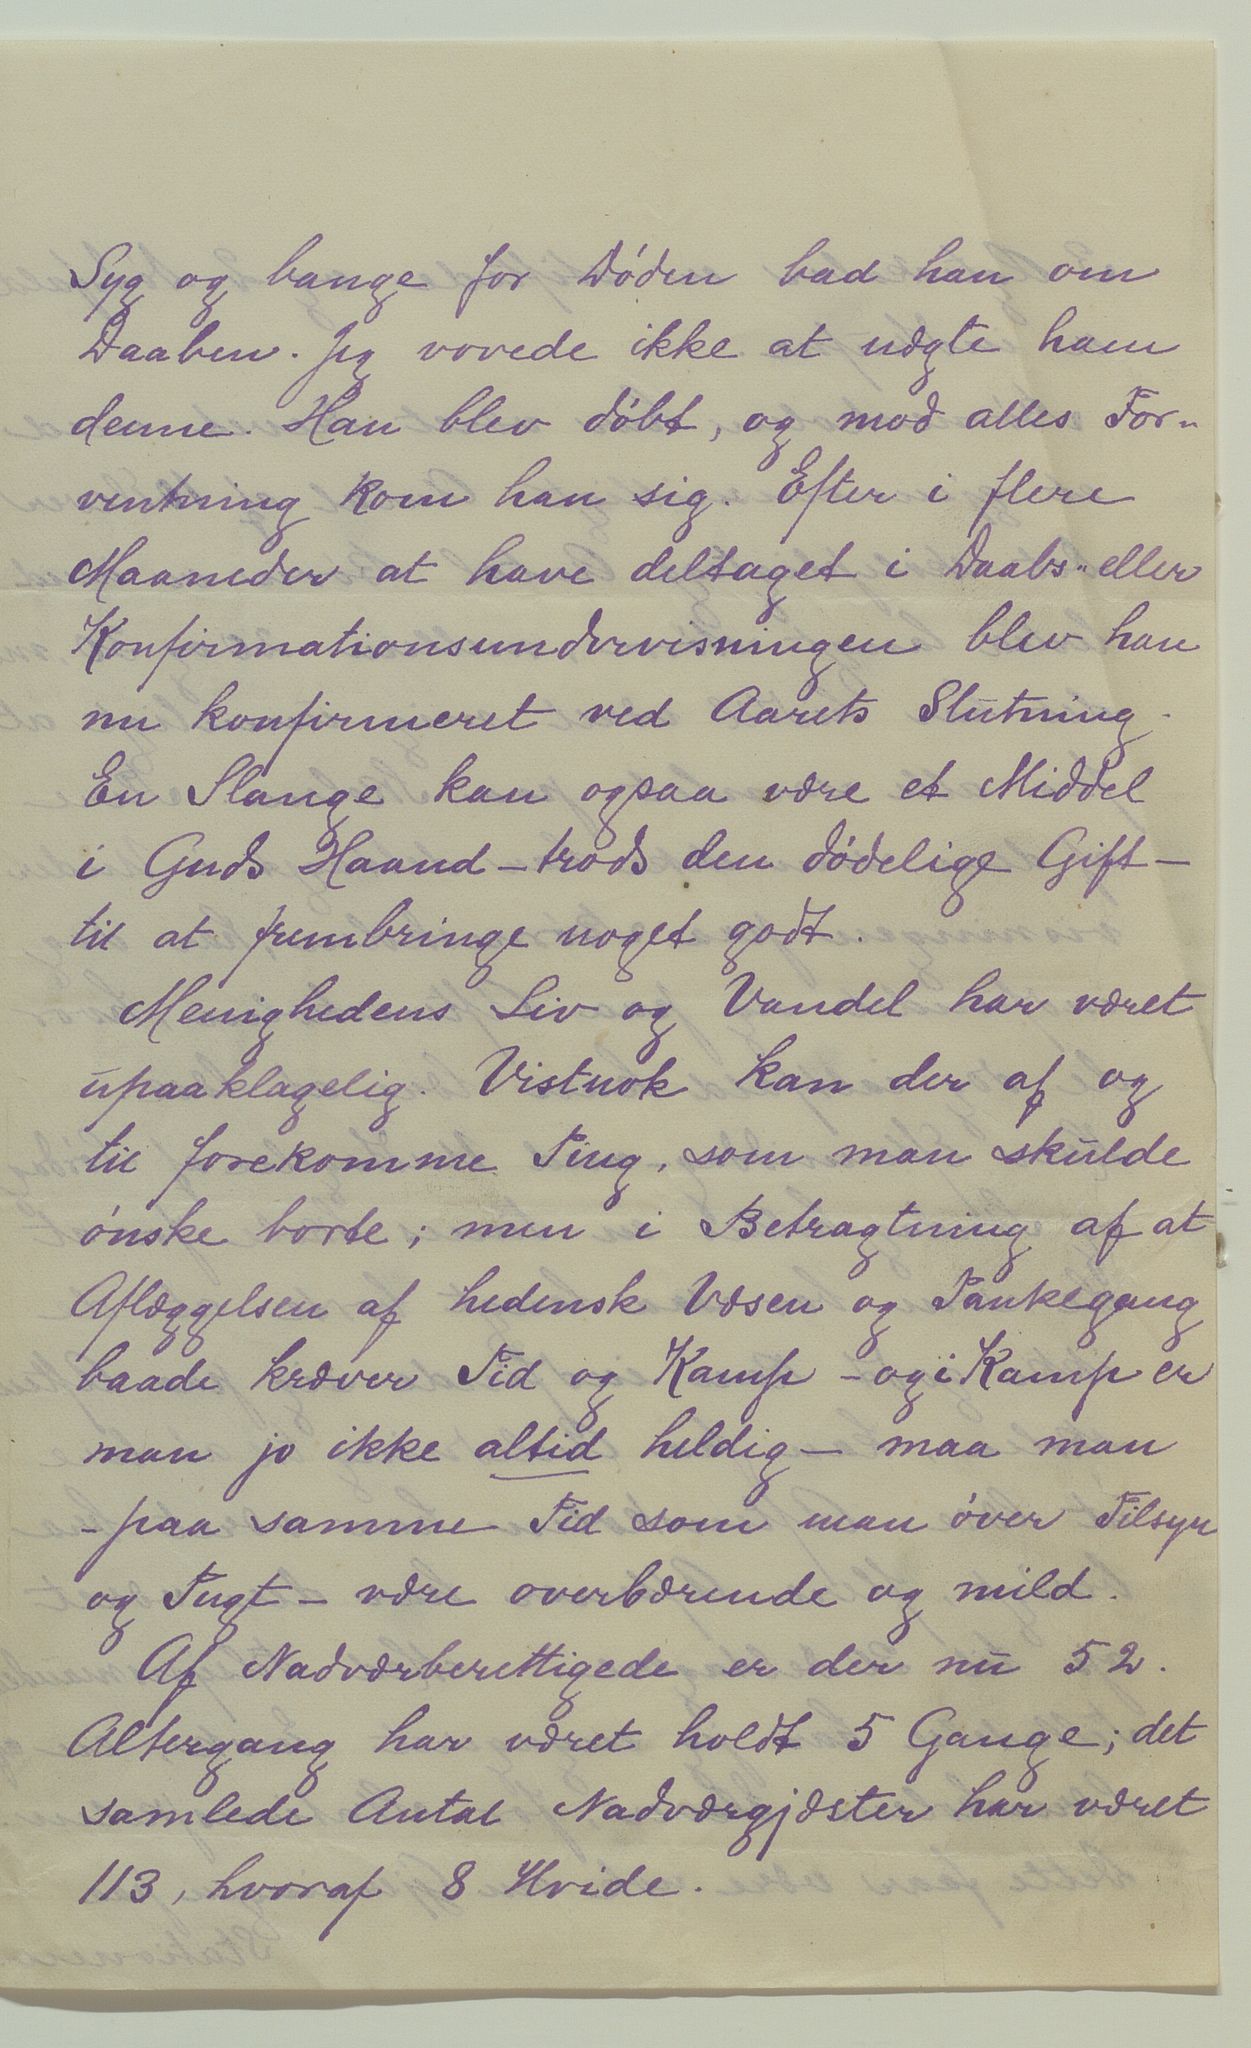 Syg og bange for Døden bad han om
Daaben. Jeg vovede ikke at nægte ham
denne. Han blev døbt, og mod alles For-
ventning kom han sig. Efter i flere
Maaneder at have deltaget i Daabs- eller
Konfirmationsundervisningen blev han
nu konfirmeret ved Aarets Slutning.
En Slange kan ogsaa være et Middel
i Guds Haand - trods den dødelige Gift -
til at frembringe noget godt.
Menighedens Liv og Vandel har været
upaaklagelig. Vistnok kan der af og
til forekomme Ting, som man skulde
ønske borte; men i Betragtning af at
Aflæggelsen af hedensk Væsen og Tankegang
baade kræver Tid og Kamp - og i Kamp er
man jo ikke altid heldig - maa man
- paa samme Tid som man øver Tilsyn
og Tugt - være overbærende og mild.
Af Nadværberettigede er der nu 52.
Altergang har været holdt 5 Gange; det
samlede Antal Nadværgjæster har været
113, hvoraf 8 Hvide.